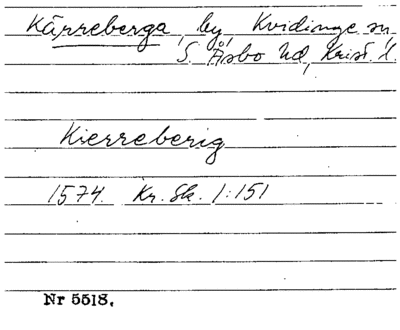 Kärreberga, by, Kvidinge sn,
S. Åsbo hd, Krist. l.
Kierreberig
1574. Kr. Sk. 1:151
Nr 5518.